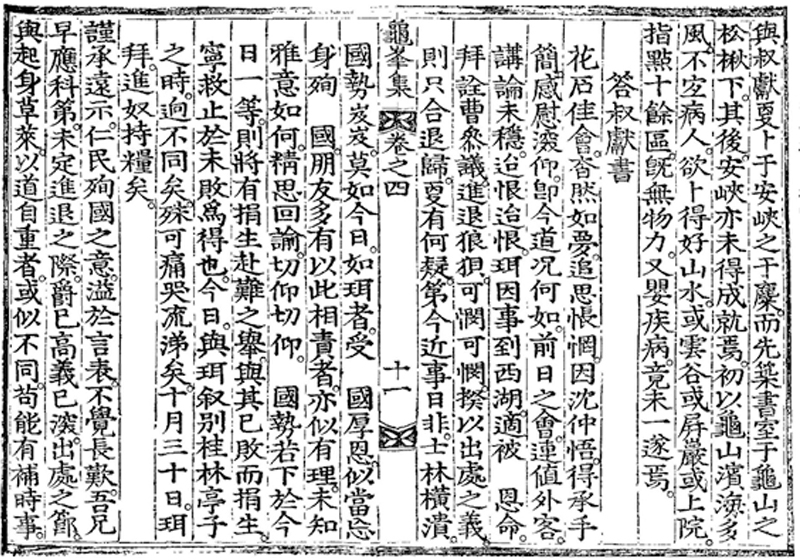 與叔獻夏卜于安峽之干麋而先築書室于龜山之
松楸下其後安峽亦未得成就焉初以龜山濱海多
風不宜病人欲卜得好山水或雲谷或屛巖或上院
指點十餘區旣無物力又嬰疾病竟未一遂焉
答叔獻書
花石佳會杳然如夢追思悵惘因沈仲悟得承手
簡感慰深仰卽今道況何如前日之會連値外客
講論未穩迨恨迨恨珥因事到西湖適被 恩命
拜詮曹叅議進退狼狽可憫可憫揆以出處之義
則只合退歸夏有何疑第今近事日非士林橫潰
龜峯集 卷之四 十一
國勢岌岌莫如今日如珥者受 國厚恩似當忘
身殉 國朋友多有以此相責者亦似有理未知
雅意如何精思回諭切仰切仰 國勢若下於今
日一等則將有捐生赴難之擧與其已敗而捐生
寧救止於未敗爲得也今日與珥叙別桂林亭子
之時逈不同矣殊可痛哭流涕矣十月三十日珥
拜進奴持糧矣
謹承遠示仁民殉國之意溢於言表不覺長歎吾兄
早應科第未定進退之際爵已高義已深出處之節
與起身草萊以道自重者或似不同苟能有補時事